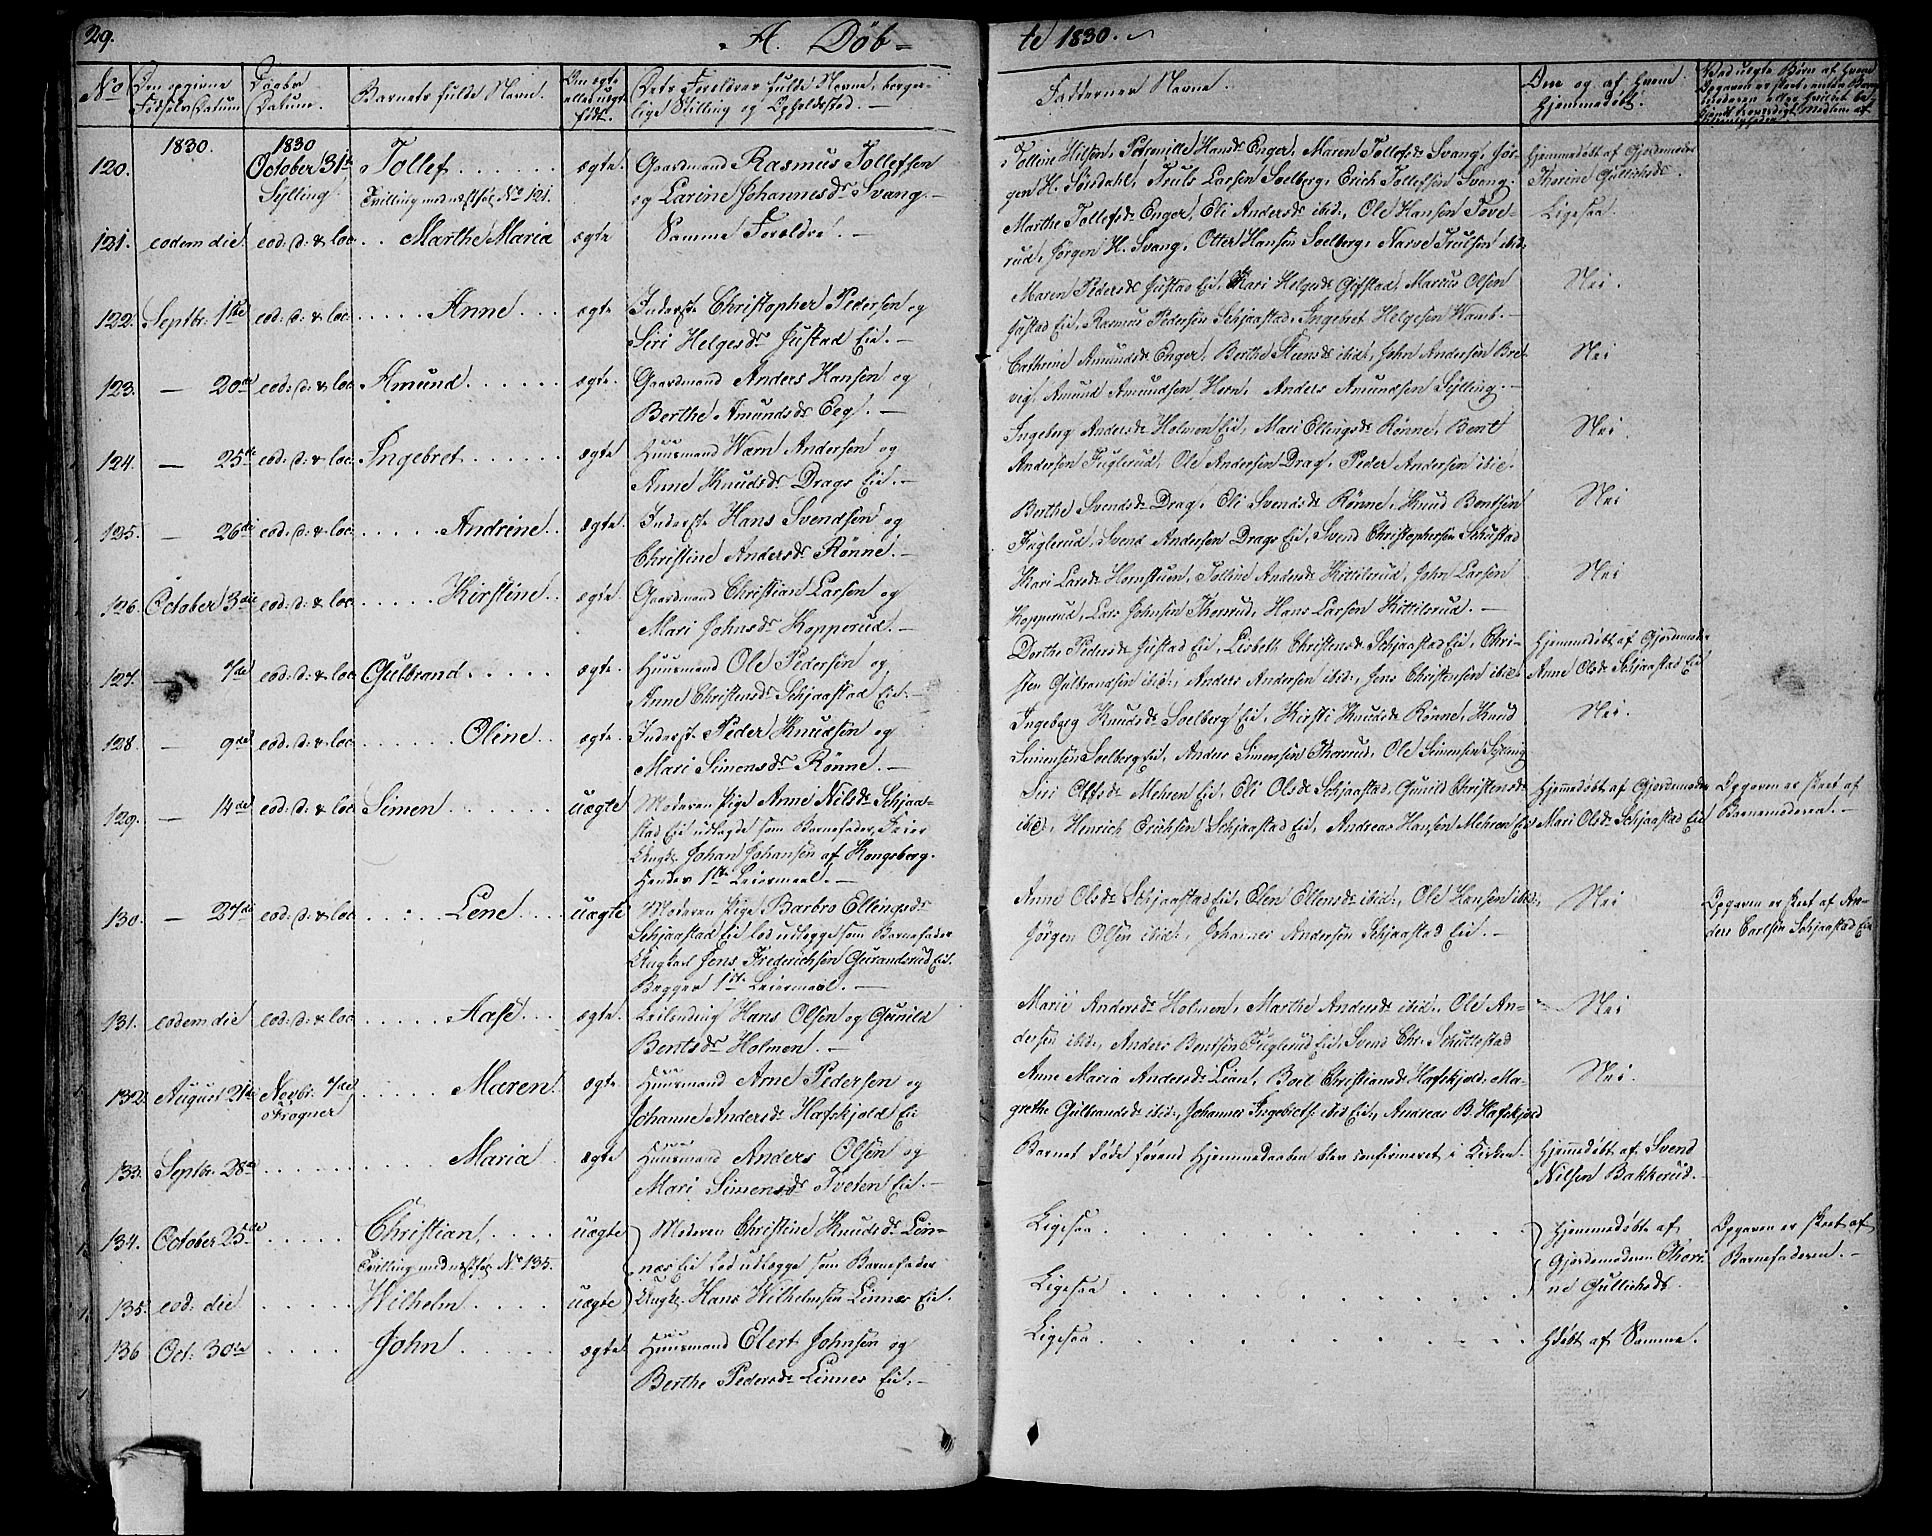 29.
A. Døb-
te 1830.
No
Den opgivne Fødsels Datum
Daabs Datum.
Barnets fulde Navn.
Om ægte eller uægte født.
Dets Forældres fulde Navne, borger-
lige Stilling og Opholdssted.
Faddernes Navne.
Om og af hvem
hjemmedøbt.
1830.
1830
120. October 31te Tollef ægte. Gaardmand Rasmus Tollefsen
Sylling Tvilling med næstføl. No 121. og Larine Johannesdr Svang.
Tolline Nilsen, Petronille Hansdr Enger, Maren Tollefsdr Svang, Jør-
gen H. Sørsdahl, Truls Larsen Soelberg, Erich Tollefsen Svang.
Hjemmedøbt af Gjordemoder
Thorine Gullichsdr.
121. eodem die eod: d: & loc Marthe Maria ægte Samme Forældre.
Marthe Tollefsdr Enger, Eli Andersdr ibid:, Ole Hansen Tove-
rud, Jørgen H. Svang, Otter Hansen Soelberg, Narve Trulsen ibid:
Ligesaa.
122. Septbr. 1ste eod: d: & loc Anne ægte Inderst Christopher Pedersen og
Siri Helgesdr Justad Eie.
Maren Pedersdr Justad Eie, Mari Helgesdr Gifstad, Marcus Olsen
Justad Eie, Rasmus Pedersen Schjaastad, Ingebret Helgesen Wamb.
Nei.
123. — 20de eod: d: & loc Amund ægte. Gaardmand Anders Hansen og
Berthe Amundsdr Eeg.
Cathrine Amundsdr Enger, Berthe Steensdr ibid:, John Andersen Bre-
vig, Amund Amundsen Horn, Anders Amundsen Sylling.
Nei
124. — 25de eod: d: & loc Ingebret ægte Huusmand Wærn Andersen og
Anne Knudsdr Drags Eie.
Ingeberg Andersdr Holmen Eie, Mari Ellingsdr Rønne, Bent
Andersen Fuglerud, Ole Andersen Drag, Peder Andersen ibid.
Nei.
125. — 26de eod: d: & loc Andrine ægte. Inderst Hans Svendsen og
Christine Andersdr Rønne.
Berthe Svendsdr Drag, Eli Svendsdr Rønne, Knud Bentsen
Fuglerud, Svend Andersen Drags Eie, Svend Christophersen Schustad
Nei
126. October 3die eod: d: & loc Kirstine ægte. Gaardmand Christian Larsen og
Mari Johnsdr Kopperud.
Kari Larsdr Hornstuen, Tolline Andersdr Kittilsrud, John Larsen
Kopperud, Lars Johnsen Thorrud, Hans Larsen Kittilsrud.
Nei
127. — 7de eod: d: & loc Gulbrand ægte. Huusmand Ole Pedersen og
Anne Christensdr Schjaastad Eie.
Dorthe Pedersdr Justad Eie, Lisbeth Christensdr Schjaastad Eie, Chri-
sten Gulbrandsen ibid:, Anders Andersen ibid:, Jens Christensen ibid:
Hjemmedøbt af Gjordemoder
Anne Olsdr Schjaastad Eie
128. — 9de eod: d: & loc Oline ægte. Inderst Peder Knudsen og
Mari Simensdr Rønne.
Ingeberg Knudsdr Soelberg Eie, Kirsti Knudsdr Rønne, Knud
Simensen Soelberg Eie, Anders Simensen Thorrud, Ole Simensen Sylling
Nei.
129. — 14de eod: d: & loc Simen uægte Moderen Pige Anne Nilsdr Schjaa-
stad Eie udlagde som Barnefader Feier
Ungk. Johan Johansen af Kongsberg.
Hendes 1ste Leiermaal.
Siri Olsdr Mehren Eie, Eli Olsdr Schjaastad, Gunild Christensdr
ibid:, Henrich Erichsen Schjaastad Eie, Andreas Hansen Mehren Eie
Hjemmedøbt af Gjordemoder
Mari Olsdr Schjaastad Eie
Opgaven er skeet af
Barnemoderen.
130. — 27de eod: d: & loc Lene uægte Moderen Pige Barbro Ellingsdr
Schjaastad Eie lod udlægge som Barnefader
Ungkarl Jens Frederichsen Gurandsrud Eie.
Begges 1ste Leiermaal.
Anne Olsdr Schjaastad Eie, Olea Ellensdr ibid:, Ole Hansen ibid:,
Jørgen Olsen ibid:, Johannes Andersen Schjaastad Eie.
Nei
Opgaven er skeet af An-
ders Carlsen Schjaastad Eie
131. eodem die eod: d: & loc Aase ægte. Leilænding Hans Olsen og Gunild
Bentsdr Holmen.
Marie Andersdr Holmen, Marthe Andersdr ibid:, Ole An-
dersen ibid:, Anders Bentsen Fuglerud Eie, Svend Chr. Schuttestad
Nei
132. August 21de Novbr. 7de Maren ægte Huusmand Arne Pedersen og
Frogner Johanne Andersdr Hafskjold Eie
Anne Maria Andersdr Lian, Boel Christiansdr Hafskjold, Ma-
grethe Gulbrandsdr ibid:, Johannes Ingebretsen ibid Eie, Andreas B. Hafskjold
Nei.
133. Septbr. 28de Maria ægte Huusmand Anders Olsen og
Mari Simensdr Tveten Eie.
Barnet døde førend Hjemmedaaben blev confirmeret i Kirken.
Hjemmedøbt af Svend
Nilsen Bakkerud.
134. October 25de Christian uægte Moderen Christine Knudsdr Lin-
Tvilling med næstføl. No 135. næs Eie lod udlægge som Barnefader
135. eod: die Wilhelm uægte Ungk. Hans Wilhelmsen Linnæs Eie.
Ligesaa
Ligesaa
Hjemmedøbte af
Gjordemoderen Thori-
ne Gullichsdr.
Opgaven er skeet af
Barnefaderen.
136 Oct. 30te John ægte Huusmand Elert Johnsen og
Berthe Pedersdr Linnes Eie.
Ligesaa
Hdøbt af Samme.